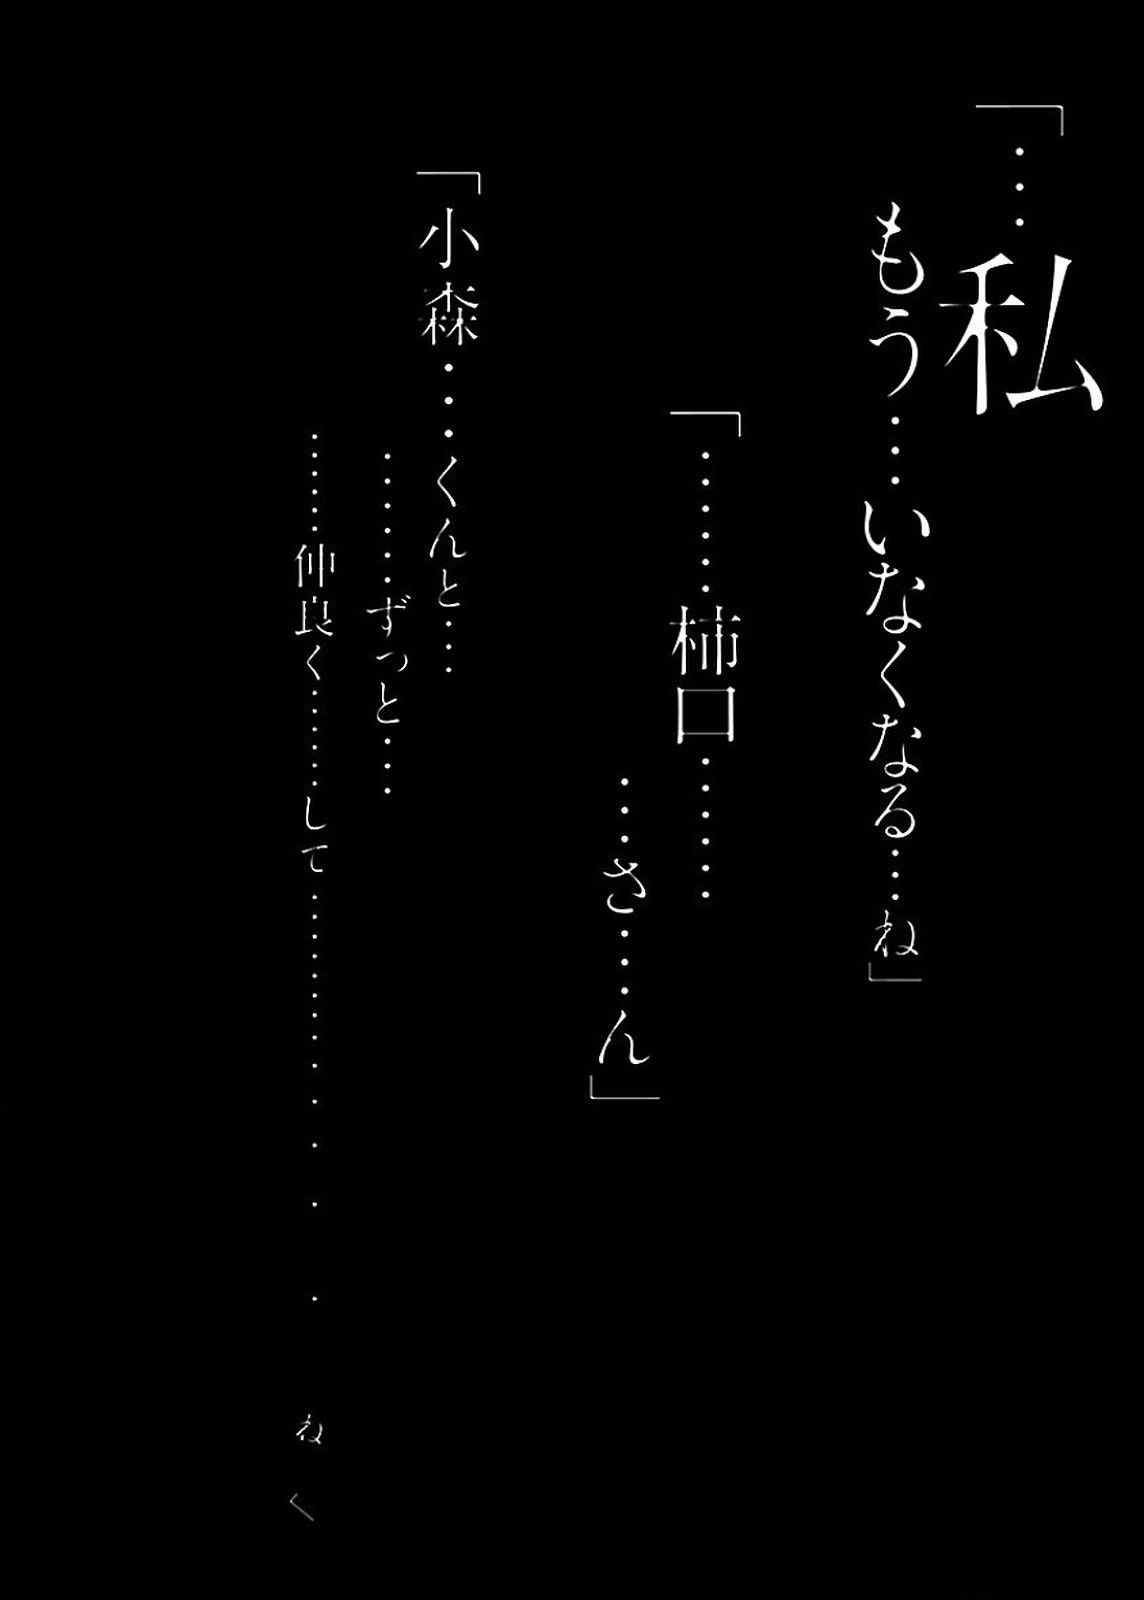 「…私
もう…いなくなる…ね」
「……柿口……
…さ…ん」
「小森…くんと…
……ずっと…
……仲良く………して……………ね」